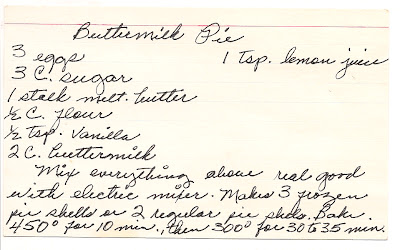 Buttermilk Pie
3 eggs 1 Tsp. lemon juice
3 C. sugar
1 stalk melt. butter
½ C. flour
½ tsp. vanilla
2 C. buttermilk
Mix everything above real good
with electric mixer. Makes 3 frozen
pie shells or 2 regular pie shells. Bake
450° for 10 min., then 300° for 30 to 35 min.